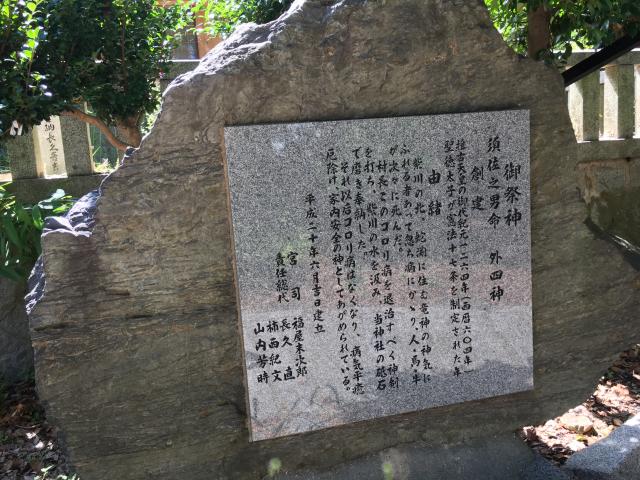 御祭神
須佐之男命 外四神
創建
推古天皇の御代紀元一二六四年(西暦六〇四年)
聖徳太子が憲法十七条を制定された年
由緒
柴川の北、蛇渕に住む竜神の神気に
ふれる者あって忽ち病にかゝり、人・馬・牛
が次々に死んだ。
村長このコロリ病を退治すべく神剣
を打ち、柴川の水を汲み、当神社の砥石
で磨き奉納した。
それ以后コロリ病はなくなり、病気平癒
厄除け、家内安全の神としてあがめられている。
平成二十年六月吉日建立
宮司 福屋末次郎
責任総代 長久直
柿西紀文
山内芳時
納 長久